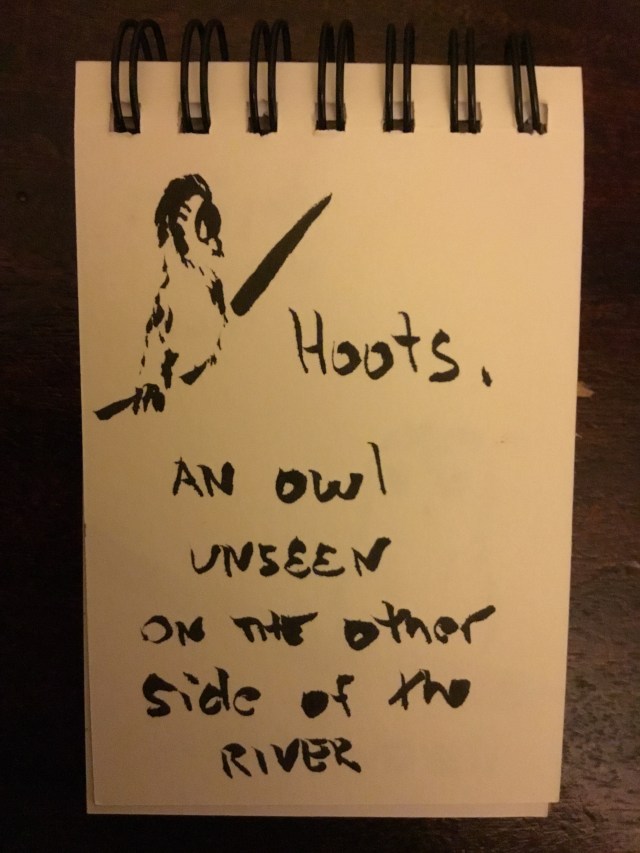 Hoots.
AN owl
UNSEEN
ON THE other
side of the
RIVER